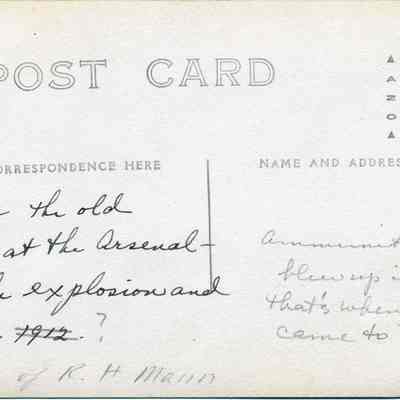 POST CARD
AZO
CORRESPONDENCE HERE
NAME AND ADDRESS
the old
at the Arsenal-
explosion and
1912. ?
Ammunit
blew up i
that's when
came to
of R. H Mann